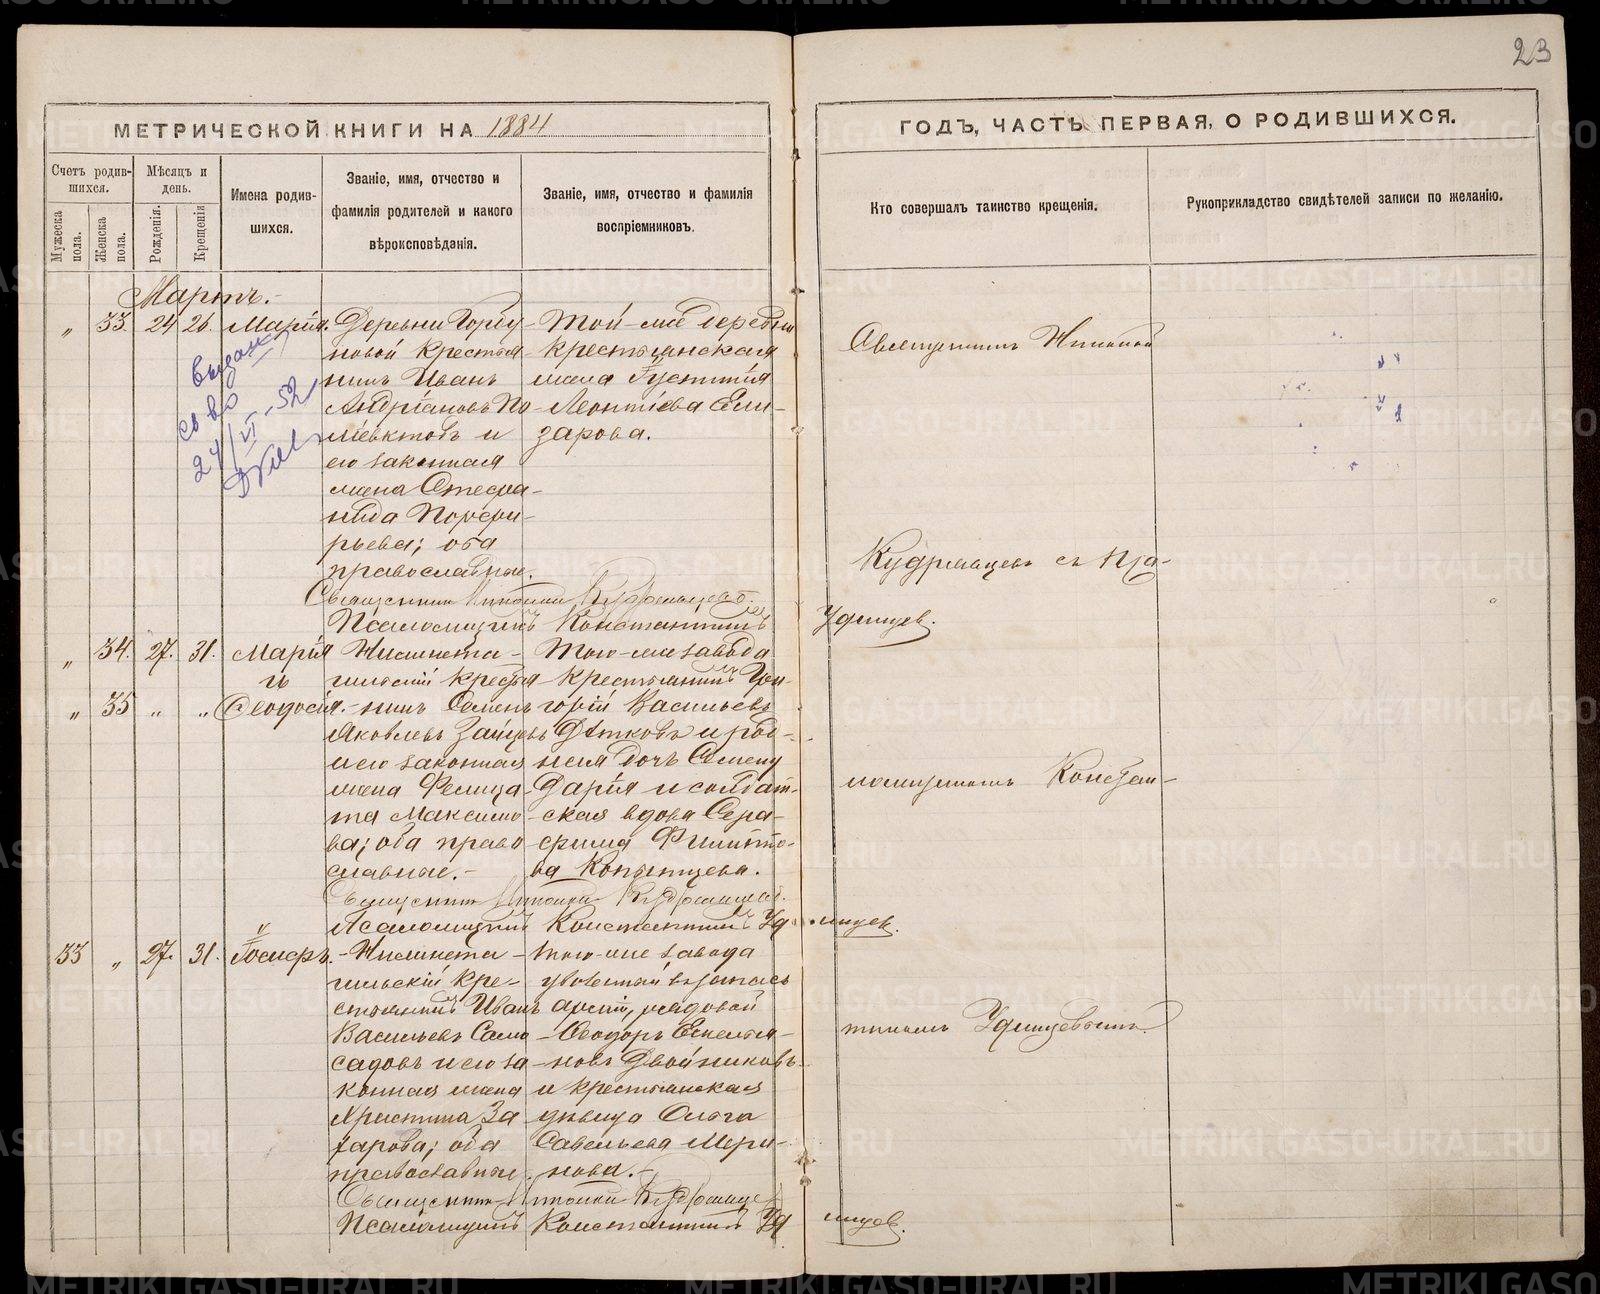 23
МЕТРИЧЕСКОЙ КНИГИ НА 1884
ГОДЪ, ЧАСТЬ ПЕРВАЯ, О РОДИВШИХСЯ.
Счетъ родив-
шихся.
Мужеска
пола.
Женска
пола.
Мѣсяцъ и
день.
Рожденія.
Крещенія
Имена родив-
шихся.
Званіе, имя, отчество и
фамилія родителей и какого
вѣроисповѣданія.
Званіе, имя, отчество и фамилія
воспріемниковъ.
Кто совершалъ таинство крещенія.
Рукоприкладство свидѣтелей записи по желанію.
Мартъ.-
" 33. 24 26. Марія.
24/VI-52
Деревни Горбу-
новой крестья-
нинъ Иванъ
Андріановъ По-
ліевктовъ и
его законная
жена Стефа-
нида Порфи-
рьева; оба
православные.
Той-же деревни
крестьянская
жена
Леонтіева Ели-
зарова.
Священникъ Николай Кудрявцевъ.
Псаломщикъ Константинъ Удинцев.
" 34. 27. 31. Марія
и
" 35 " " Ѳеодосія.-
Нижнета-
гильскій крестья-
нинъ Семенъ
Яковлевъ Зайцевъ
и его законная
жена Фелица-
та Максимо-
ва; оба право-
славные.-
Того-же завода
крестьянинъ Гри-
горій Васильевъ
Дѣтковъ и род-
ная дочь Семену
Дарія и солдат-
ская вдова Сера-
фима Филиппо-
ва Копытцева.
Священникъ Николай Кудрявцев.
Псаломщикъ Константинъ Удинцев.
33 " 27. 31. Іосифъ.-
Нижнета-
гильскій кре-
стьянинъ Иванъ
Васильевъ Само-
садовъ и его за-
конная жена
Христина За-
харова; оба
православные.
Того-же завода
уволенный въ запасъ
арміи, рядовой
Ѳеодоръ Емелья-
новъ Двойниковъ
и крестьянская
дѣвица Ольга
Савельева Мери-
нова.-
Священникъ Николай Кудрявцев
Псаломщикъ Константинъ Удинцев.
Священникъ Николай
Кудрявцевъ съ Пса-
ломщикомъ Констан-
тиномъ Удинцевымъ.
METRIKI.GASO-URAL.RU